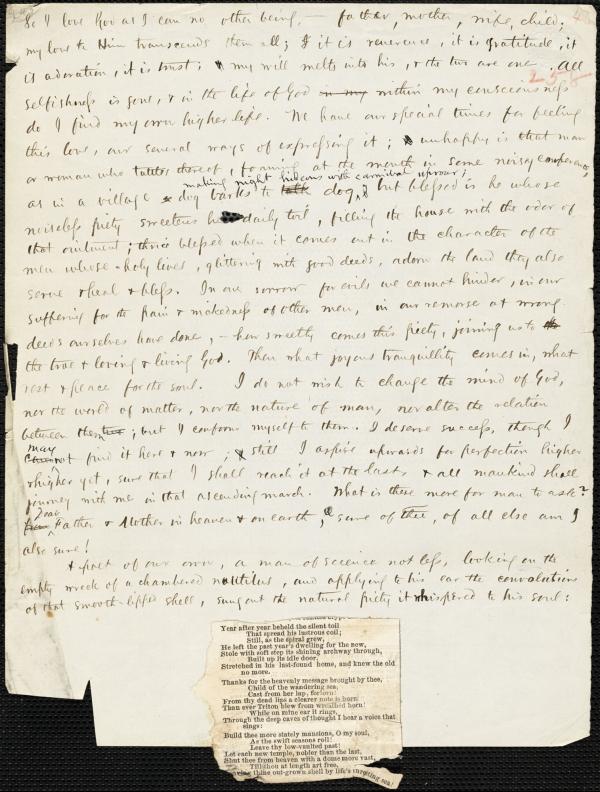 So I love God as I can no other being, — father, mother, wife, child;
my love to Him transcends them all; & it is reverence, it is gratitude, it
is adoration, it is trust; my will melts into his, & the two are one. All
258
selfishness is gone, & in the life of God in my within my consciousness
do I find my own higher life. We have our special times for feeling
this love, our several ways of expressing it; unhappy is that man
or woman who tattles thereof, foaming at the mouth in some noisy conference,
making night hideous with carnival uproar,
as in a village dog barks to talk dog, but blessed is he whose
noiseless piety sweetens his daily toil, filling the house with the odor of
that ointment; thrice blessed when it comes out in the character of the
men whose holy lives, glittering with good deeds, adorn the land they also
serve & heal & bless. In our sorrow for evils we cannot hinder, in our
suffering for the pain & wickedness of other men, in our remorse at wrong
deeds ourselves have done, — how sweetly comes this piety, joining us to
the true & loving & living God. Then what joyous tranquillity comes in, what
rest & peace for the soul. I do not wish to change the mind of God,
nor the world of matter, nor the nature of man, nor alter the relation
between them; but I conform myself to them. I deserve success, though I
may
cannot find it here & now; still I aspire upwards for perfection higher
& higher yet, sure that I shall reach it at the last, & all mankind shall
journey with me in that ascending march. What is there more for man to ask?
Dear
Father & Mother in heaven & on earth, sure of thee, of all else am I
also sure!
A poet of our own, a man of science not less, looking on the
empty wreck of a chambered nautilus, and applying to his ear the convolutions
of that smooth-lipped shell, sung out the natural piety it whispered to his soul:
Year after year beheld the silent toil
That spread his lustrous coil;
Still, as the spiral grew,
He left the past year's dwelling for the new,
Stole with soft step its shining archway through,
Built up its idle door,
Stretched in his last-found home, and knew the old
no more.
Thanks for the heavenly message brought by thee,
Child of the wandering sea,
Cast from her lap, forlorn!
From thy dead lips a clearer note is born
Than ever Triton blew from wreathed horn!
While on mine ear it rings,
Through the deep caves of thought I hear a voice that
sings:
Build thee more stately mansions, O my soul,
As the swift seasons roll!
Leave thy low-vaulted past!
Let each new temple, nobler than the last,
Shut thee from heaven with a dome more vast,
Till thou at length art free,
Leaving thine out-grown shell by life's unresting sea!